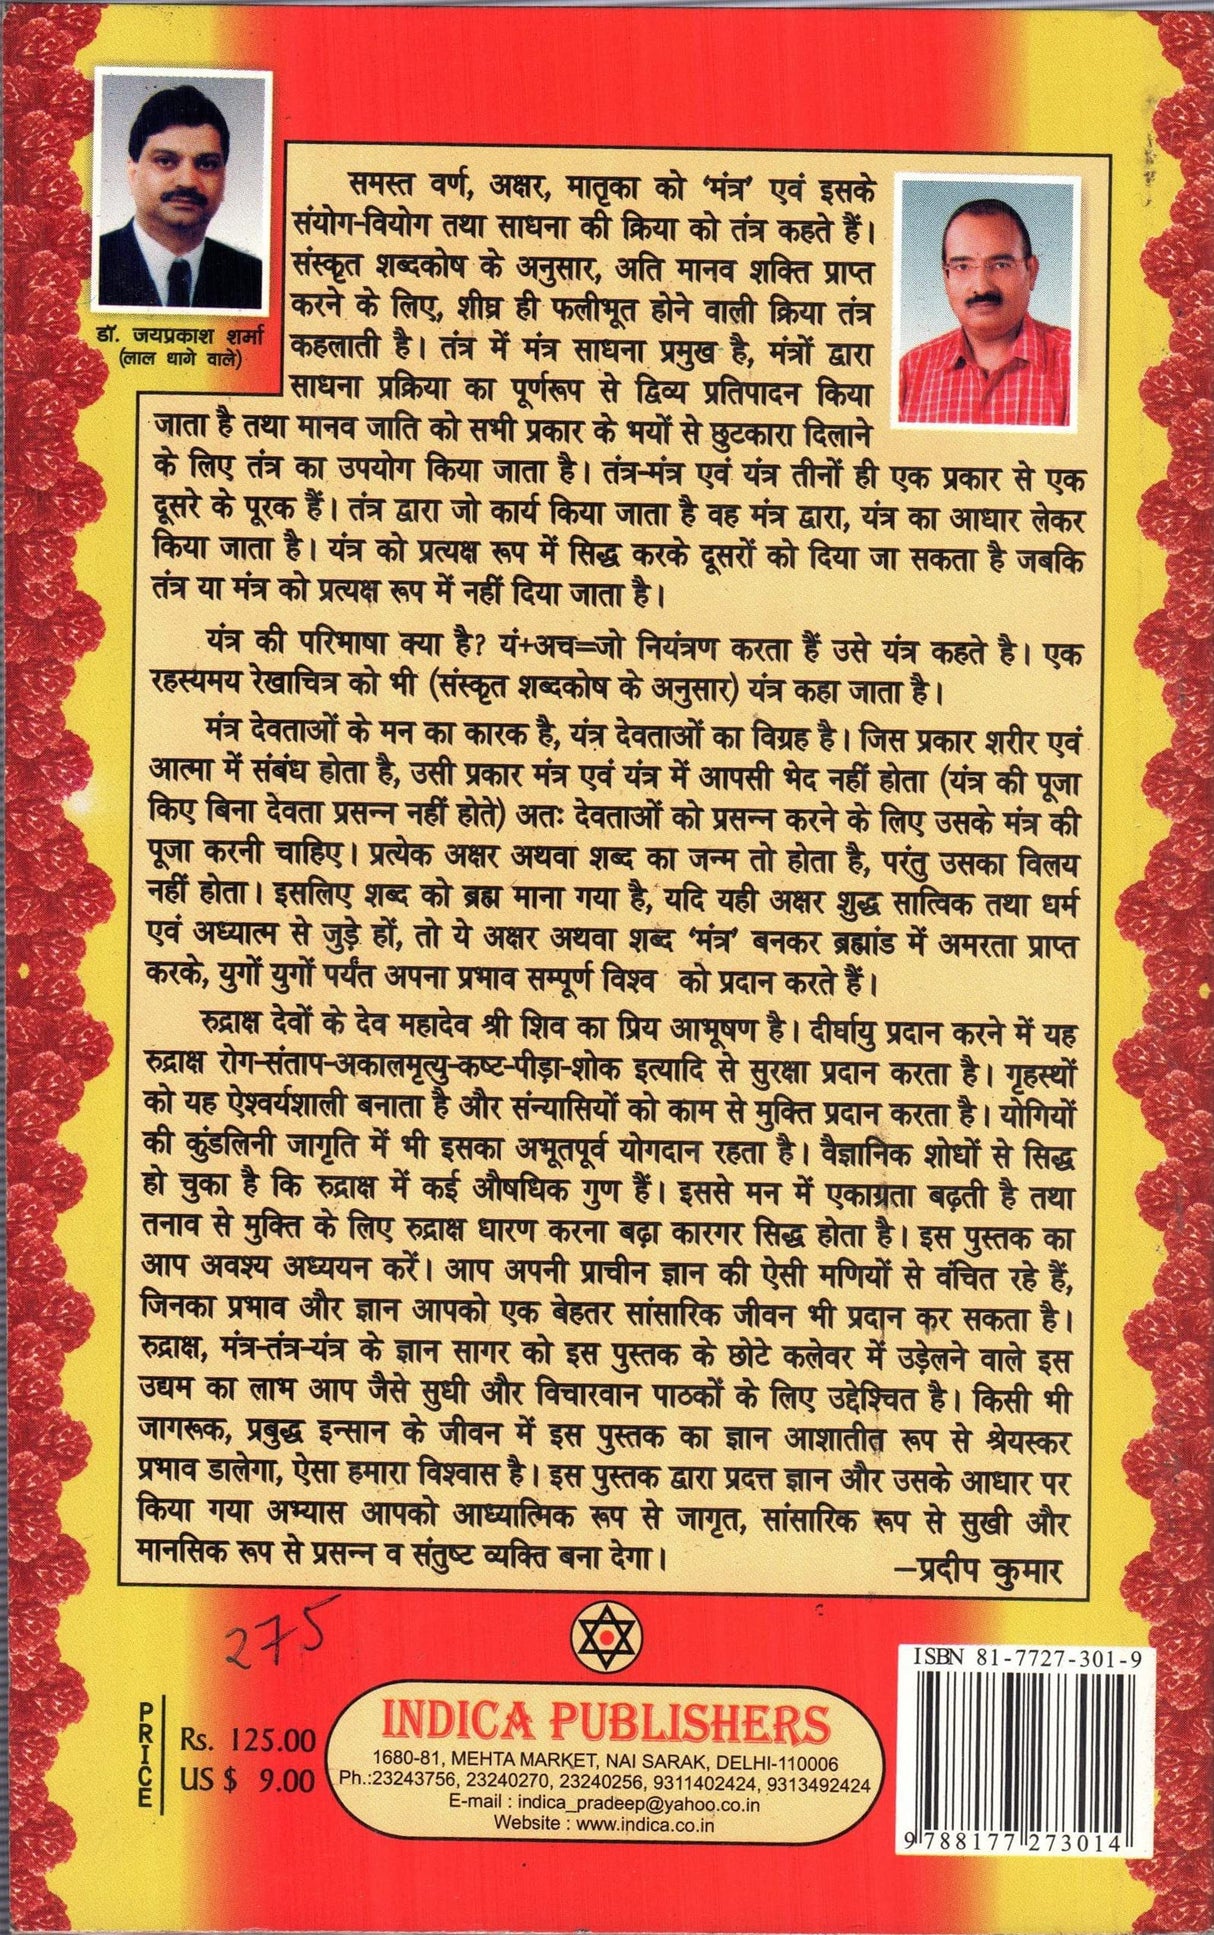 डॉ. जयप्रकाश शर्मा
(लाल धागे वाले)
समस्त वर्ण, अक्षर, मातृका को ‘मंत्र’ एवं इसके
संयोग-वियोग तथा साधना की क्रिया को तंत्र कहते हैं।
संस्कृत शब्दकोष के अनुसार, अति मानव शक्ति प्राप्त
करने के लिए, शीघ्र ही फलीभूत होने वाली क्रिया तंत्र
कहलाती है। तंत्र में मंत्र साधना प्रमुख है, मंत्रों द्वारा
साधना प्रक्रिया का पूर्णरूप से द्विव्य प्रतिपादन किया
जाता है तथा मानव जाति को सभी प्रकार के भयों से छुटकारा दिलाने
के लिए तंत्र का उपयोग किया जाता है। तंत्र-मंत्र एवं यंत्र तीनों ही एक प्रकार से एक
दूसरे के पूरक हैं। तंत्र द्वारा जो कार्य किया जाता है वह मंत्र द्वारा, यंत्र का आधार लेकर
किया जाता है। यंत्र को प्रत्यक्ष रूप में सिद्ध करके दूसरों को दिया जा सकता है जबकि
तंत्र या मंत्र को प्रत्यक्ष रूप में नहीं दिया जाता है।
यंत्र की परिभाषा क्या है? यं+अच=जो नियंत्रण करता हैं उसे यंत्र कहते है। एक
रहस्यमय रेखाचित्र को भी (संस्कृत शब्दकोष के अनुसार) यंत्र कहा जाता है।
मंत्र देवताओं के मन का कारक है, यंत्र देवताओं का विग्रह है। जिस प्रकार शरीर एवं
आत्मा में संबंध होता है, उसी प्रकार मंत्र एवं यंत्र में आपसी भेद नहीं होता (यंत्र की पूजा
किए बिना देवता प्रसन्न नहीं होते) अतः देवताओं को प्रसन्न करने के लिए उसके मंत्र की
पूजा करनी चाहिए। प्रत्येक अक्षर अथवा शब्द का जन्म तो होता है, परंतु उसका विलय
नहीं होता। इसलिए शब्द को ब्रह्म माना गया है, यदि यही अक्षर शुद्ध सात्विक तथा धर्म
एवं अध्यात्म से जुड़े हों, तो ये अक्षर अथवा शब्द ‘मंत्र’ बनकर ब्रह्मांड में अमरता प्राप्त
करके, युगों युगों पर्यंत अपना प्रभाव सम्पूर्ण विश्व को प्रदान करते हैं।
रुद्राक्ष देवों के देव महादेव श्री शिव का प्रिय आभूषण है। दीर्घायु प्रदान करने में यह
रुद्राक्ष रोग-संताप-अकालमृत्यु-कष्ट-पीड़ा-शोक इत्यादि से सुरक्षा प्रदान करता है। गृहस्थों
को यह ऐश्वर्यशाली बनाता है और संन्यासियों को काम से मुक्ति प्रदान करता है। योगियों
की कुंडलिनी जागृति में भी इसका अभूतपूर्व योगदान रहता है। वैज्ञानिक शोधों से सिद्ध
हो चुका है कि रुद्राक्ष में कई औषधिक गुण हैं। इससे मन में एकाग्रता बढ़ती है तथा
तनाव से मुक्ति के लिए रुद्राक्ष धारण करना बढ़ा कारगर सिद्ध होता है। इस पुस्तक का
आप अवश्य अध्ययन करें। आप अपनी प्राचीन ज्ञान की ऐसी मणियों से वंचित रहे हैं,
जिनका प्रभाव और ज्ञान आपको एक बेहतर सांसारिक जीवन भी प्रदान कर सकता है।
रुद्राक्ष, मंत्र-तंत्र-यंत्र के ज्ञान सागर को इस पुस्तक के छोटे कलेवर में उड़ेलने वाले इस
उद्यम का लाभ आप जैसे सुधी और विचारवान पाठकों के लिए उद्देश्चित है। किसी भी
जागरूक, प्रबुद्ध इन्सान के जीवन में इस पुस्तक का ज्ञान आशातीत रूप से श्रेयस्कर
प्रभाव डालेगा, ऐसा हमारा विश्वास है। इस पुस्तक द्वारा प्रदत्त ज्ञान और उसके आधार पर
किया गया अभ्यास आपको आध्यात्मिक रूप से जागृत, सांसारिक रूप से सुखी और
मानसिक रूप से प्रसन्न व संतुष्ट व्यक्ति बना देगा।
–प्रदीप कुमार
275
PRICE
Rs. 125.00
US $ 9.00
INDICA PUBLISHERS
1680-81, MEHTA MARKET, NAI SARAK, DELHI-110006
Ph.:23243756, 23240270, 23240256, 9311402424, 9313492424
E-mail : indica_pradeep@yahoo.co.in
Website : www.indica.co.in
ISBN 81-7727-301-9
9 788177 273014